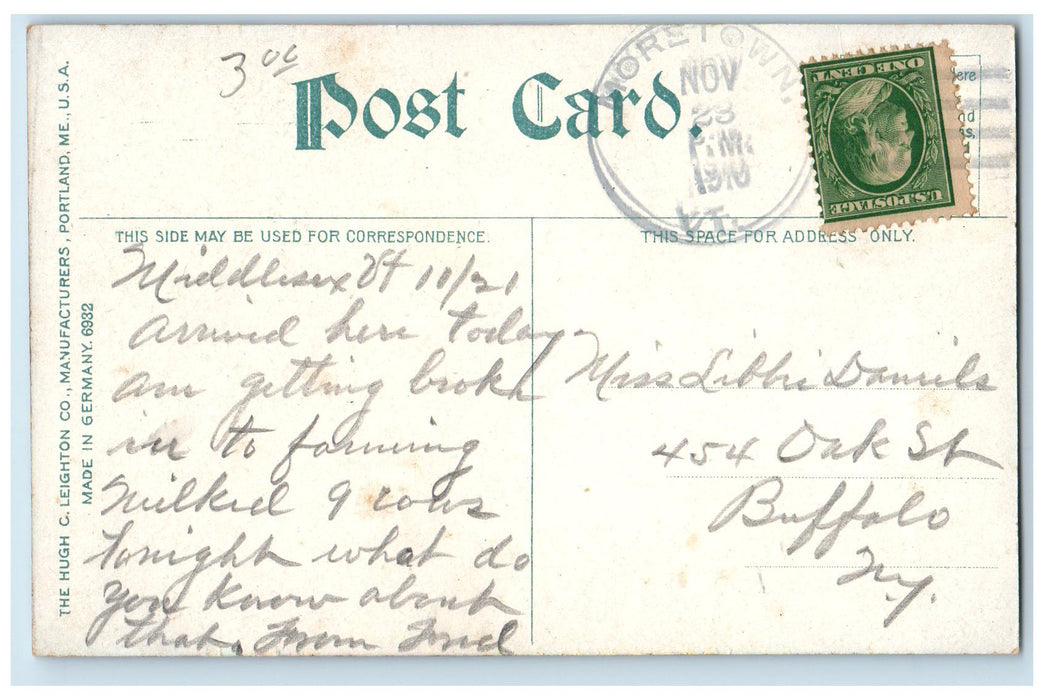 3 00
Post Card.
MORETOWN.
NOV
23
P.M.
1910
VT.
ONE CENT
U.S. POSTAGE
THE HUGH C. LEIGHTON CO., MANUFACTURERS, PORTLAND, ME., U.S.A.
MADE IN GERMANY. 6932
THIS SIDE MAY BE USED FOR CORRESPONDENCE.
Middlesex Vt 11/21
Arrived here today
am getting broke
in to farming
Milked 9 cows
tonight what do
you know about
that. From Fred
THIS SPACE FOR ADDRESS ONLY.
Miss Libbie Daniels
454 Oak St
Buffalo
N.y.